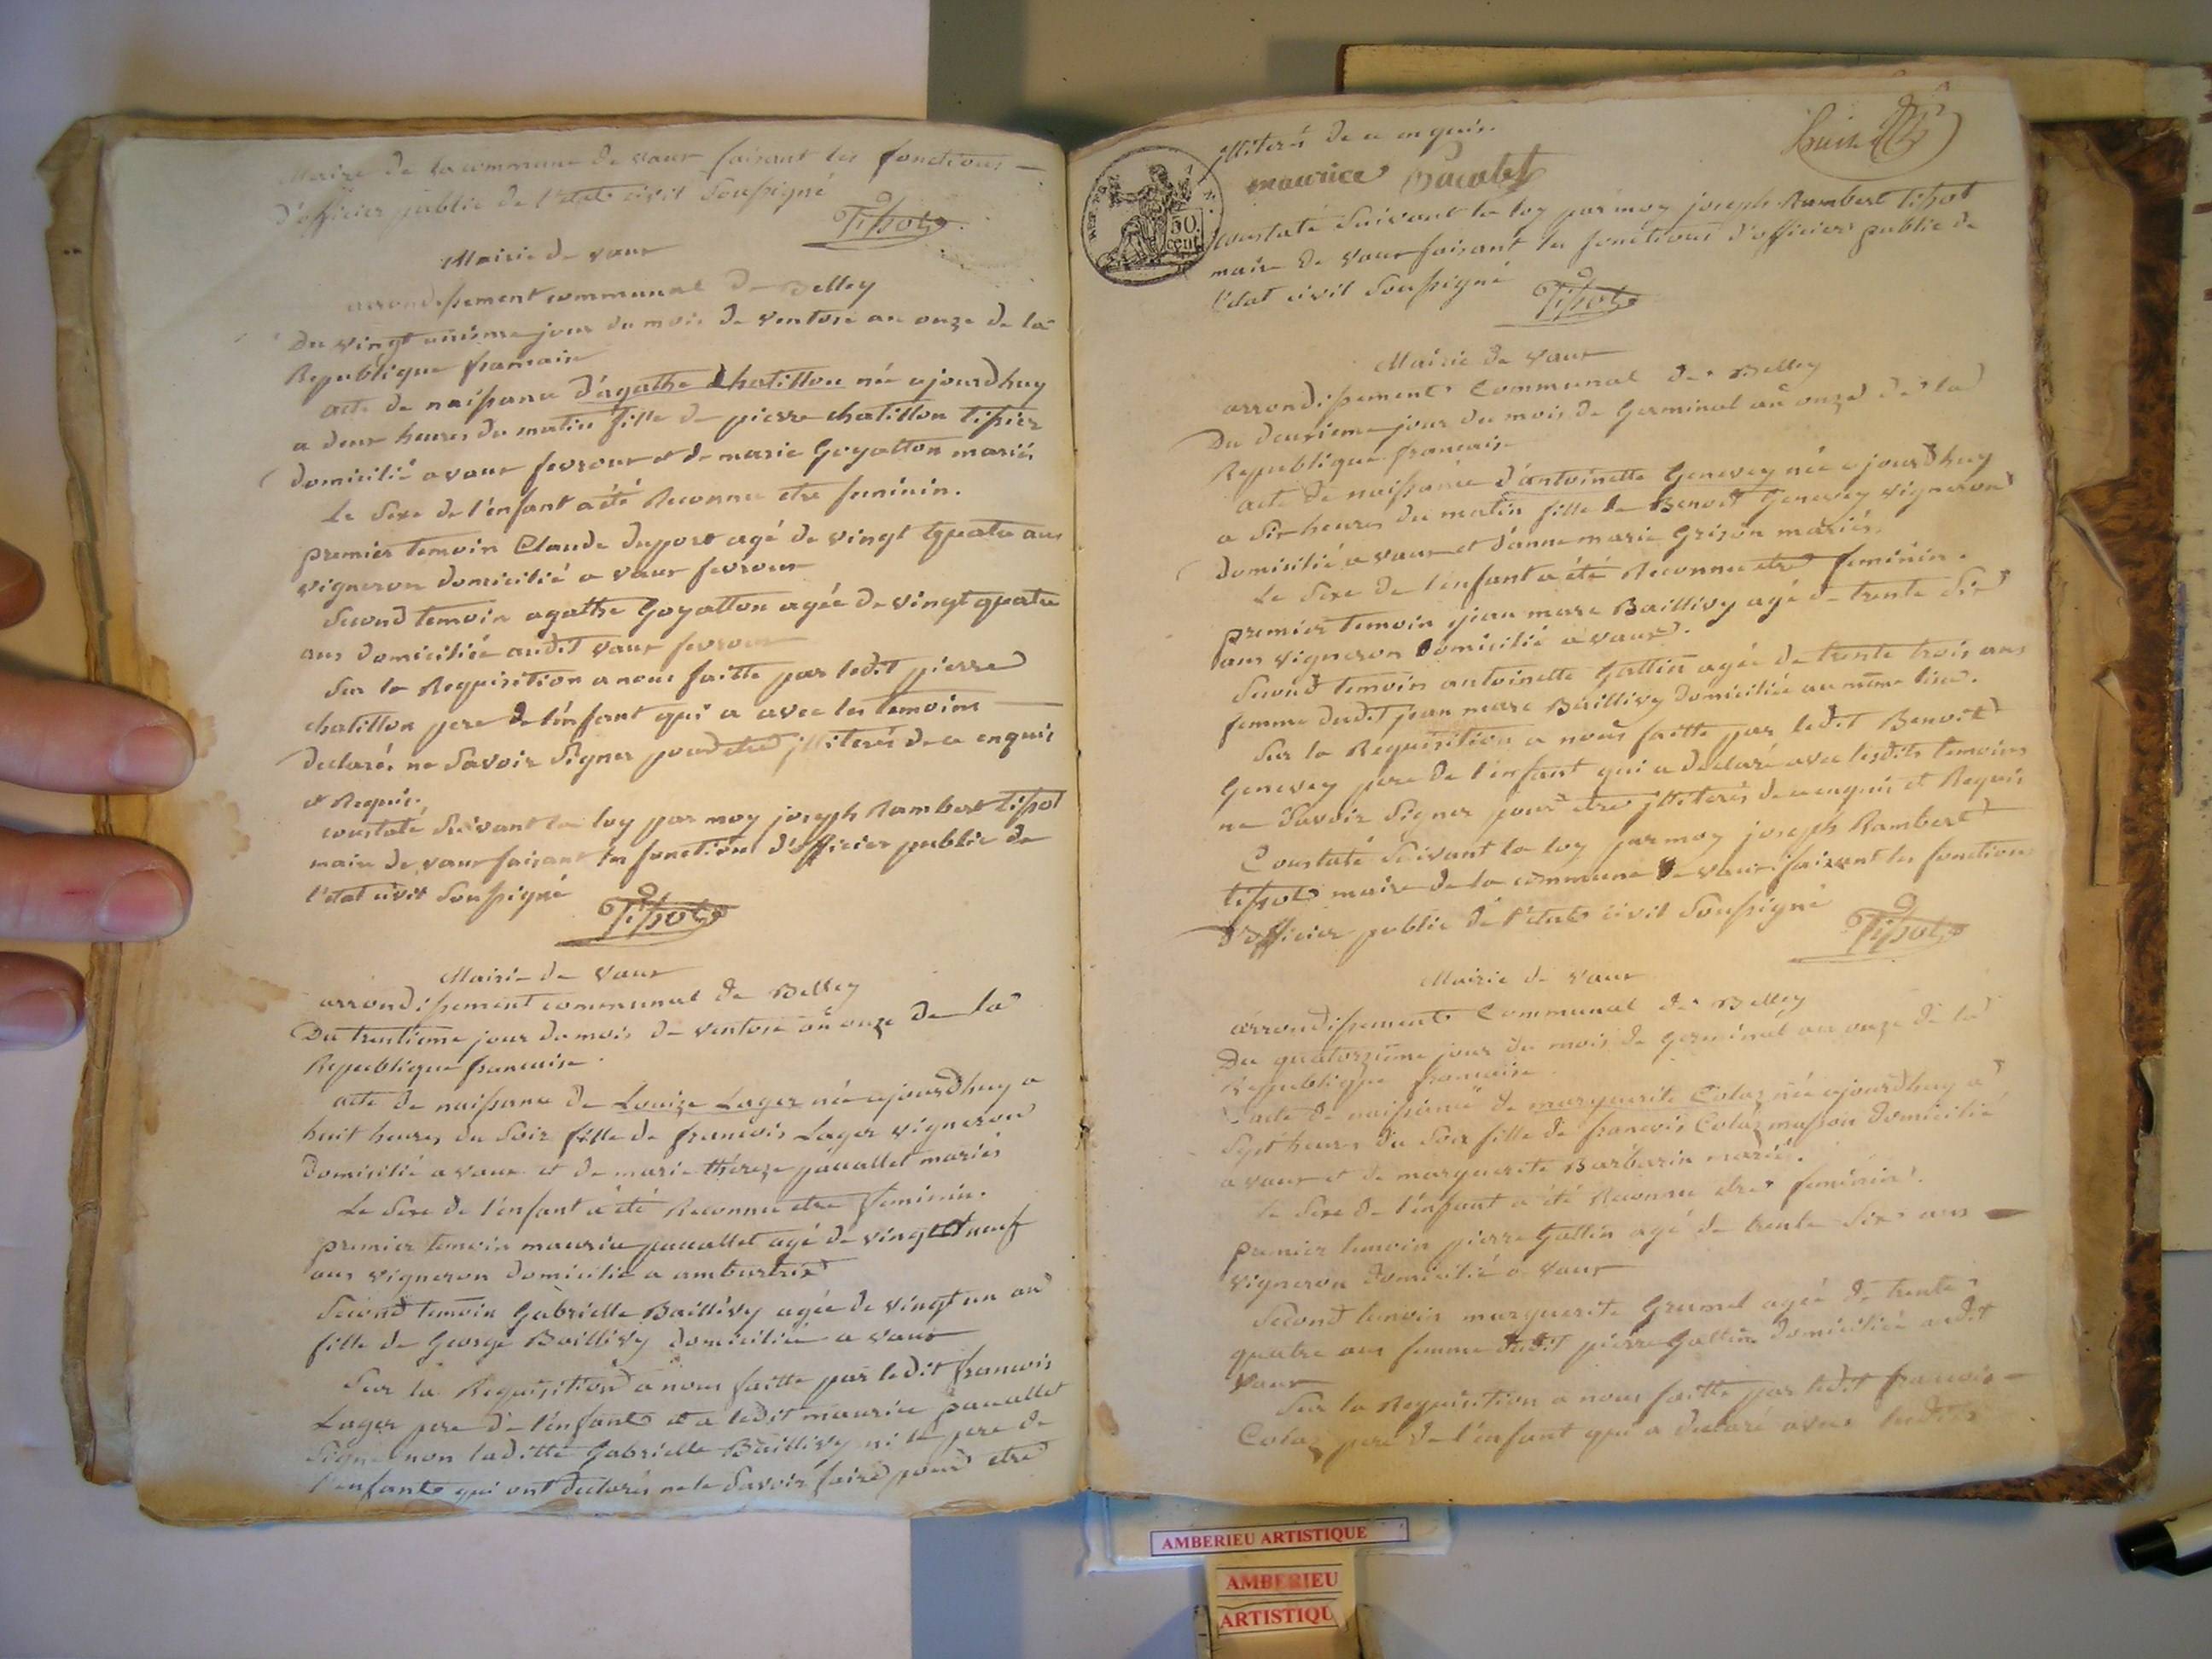 Maire de la commune de vaux faisant les fonctions
d'officier public de l'etat civil soussigné
Tissot
Mairie de vaux
arrondissement communal de Belley
Du vingt unieme jour du mois de ventose an onze de la
Republique francaise
acte de naissance d'agathe Chatillon née ajourdhuy
a deux heures du matin fille de pierre chatillon tissier
domicilié a vaux fevroux et de marie Goyatton mariés
Le sexe de l'enfant a été Reconnu etre feminin.
premier temoin Claude duport agé de vingt quatre ans
vigneron domicilié a vaux fevroux
second temoin agathe Goyatton agée de vingt quatre
ans domiciliée audit vaux fevroux
sur la Requisition a nous faitte par ledit pierre
chatillon pere de l'enfant qui a avec les temoins
declarés ne savoir signer pour etre illiterés de ce enquis
et Requis.
constaté suivant la loy par moy joseph Rambert tissot
maire de vaux faisant les fonctions d'officier public de
l'etat civil soussigné
Tissot
Mairie de vaux
arrondissement communal de Belley
Du trentieme jour du mois de ventose an onze de la
Republique francaise.
acte de naissance de Louize Lager née ajourdhuy a
huit heures du soir fille de francois Lager vigneron
domicilié a vaux et de marie thereze pauallet mariés
Le sexe de l'enfant a été Reconnu etre feminin.
premier temoin maurice pauallet agé de vingt neuf
ans vigneron domicilié a ambutrix
second temoin Gabrielle Baillivy agée de vingt un an
fille de George Baillivy domiciliée a vaux
sur la Requisition a nous faitte par ledit francois
Lager pere de l'enfant et a ledit maurice pauallet
signé non laditte Gabrielle Baillivy ni le pere de
l'enfant qui ont declarés ne le savoir faire pour etre
illiterés de ce enquis.
maurice
constaté suivant la loy par moy joseph Rambert tissot
maire de vaux faisant les fonctions d'officier public de
l'etat civil soussigné
Tissot
50
cent
Mairie de vaux
arrondissement Communal de Belley
Du deuxieme jour du mois de Germinal an onze de la
Republique francaise
acte de naissance d'antoinette Genevey née ajourdhuy
a six heures du matin fille de Benoit Genevey vigneron
domicilié a vaux et d'anne marie Grison mariés.
Le sexe de l'enfant a été Reconnu etre feminin.
premier temoin jean marc Baillivy agé de trente six
ans vigneron domicilié a vaux.
second temoin antoinette Gattin agée de trente trois ans
femme dudit jean marc Baillivy domiciliée au même lieu.
sur la Requisition a nous faitte par ledit Benoit
Genevey pere de l'enfant qui a declaré avec lesdits temoins
ne savoir signer pour etre illiterés de ce enquis et Requis
Constaté suivant la loy par moy joseph Rambert
tissot maire de la commune de vaux faisant les fonctions
d'officier public de l'etat civil soussigné
Tissot
Mairie de vaux
arrondissement Communal de Belley
Du quatorzieme jour du mois de germinal an onze de la
Republique francaise.
acte de naissance de marguerite Colaz née ajourdhuy a
sept heures du soir fille de francois Colaz masson domicilié
a vaux et de marguerite Barbarin mariés.
le sexe de l'enfant a été Reconnu etre feminin.
premier temoin pierre Gattin agé de trente six ans
vigneron domicilié a vaux
second temoin marguerite Grumel agée de trente
quatre ans femme dudit pierre Gattin domiciliée audit
vaux
sur la Requisition a nous faitte par ledit francois
Colaz pere de l'enfant qui a declaré avec lesdits
AMBERIEU ARTISTIQUE
AMBERIEU
ARTISTIQU